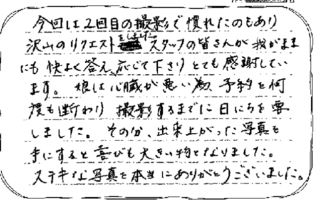 今回は2回目の撮影で慣れたのもあり
沢山のリクエストをしました スタッフの皆さんが我がまま
にも快よく答え、応じて下さりとても感謝してい
ます。娘は心臓が悪い為、予約を何
度も断わり 撮影するまでに日にちを要
しました。その分、出来上がった写真を
手にすると喜びも大きい物となりました。
ステキな写真を本当にありがとうございました。